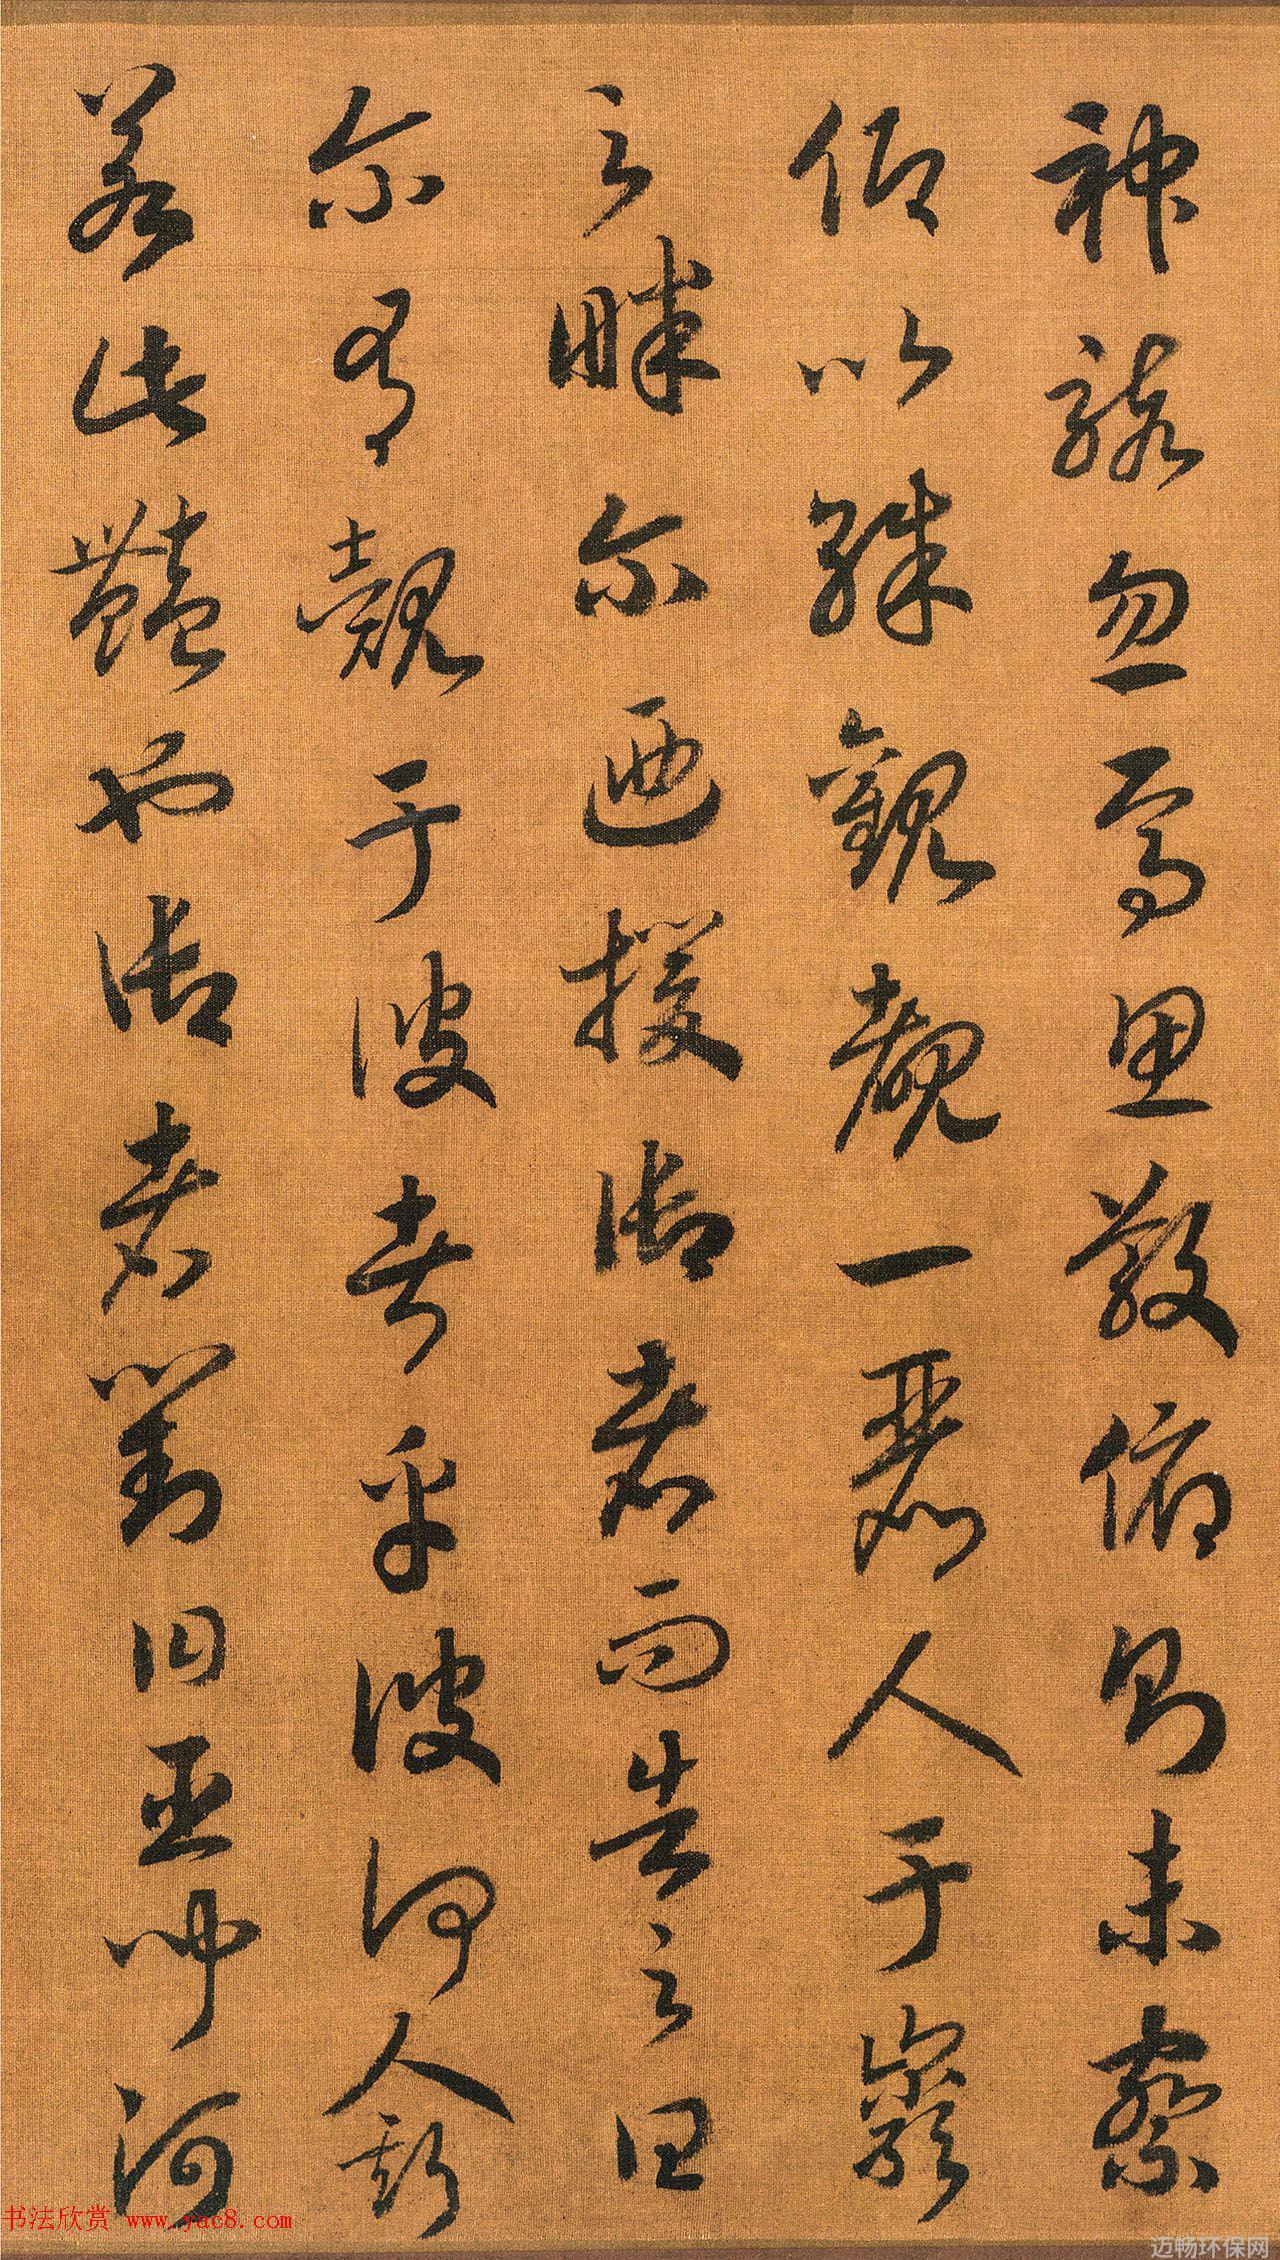 神駭忽焉思散俯則未察
仰以殊觀覩一麗人于巖
之畔尔迺援御者而告之曰
尔有覿于彼者乎彼何人斯
若此豔也御者對曰臣聞河
书法欣赏 www.yac8.com
迈畅环保网